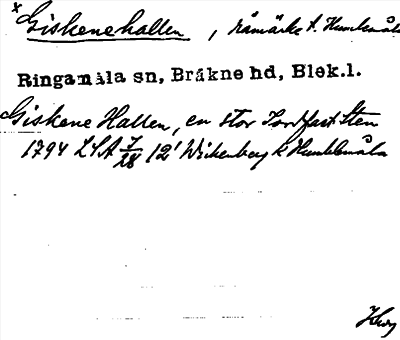 x Giskenehallen, råmärke t. Humlemåla
Ringamåla sn, Bräkne hd, Blek.l.
Giskene Hallen, en stor Jordfast Sten
1794 LSA 7/28 12' Wickenberg k Humblemåla